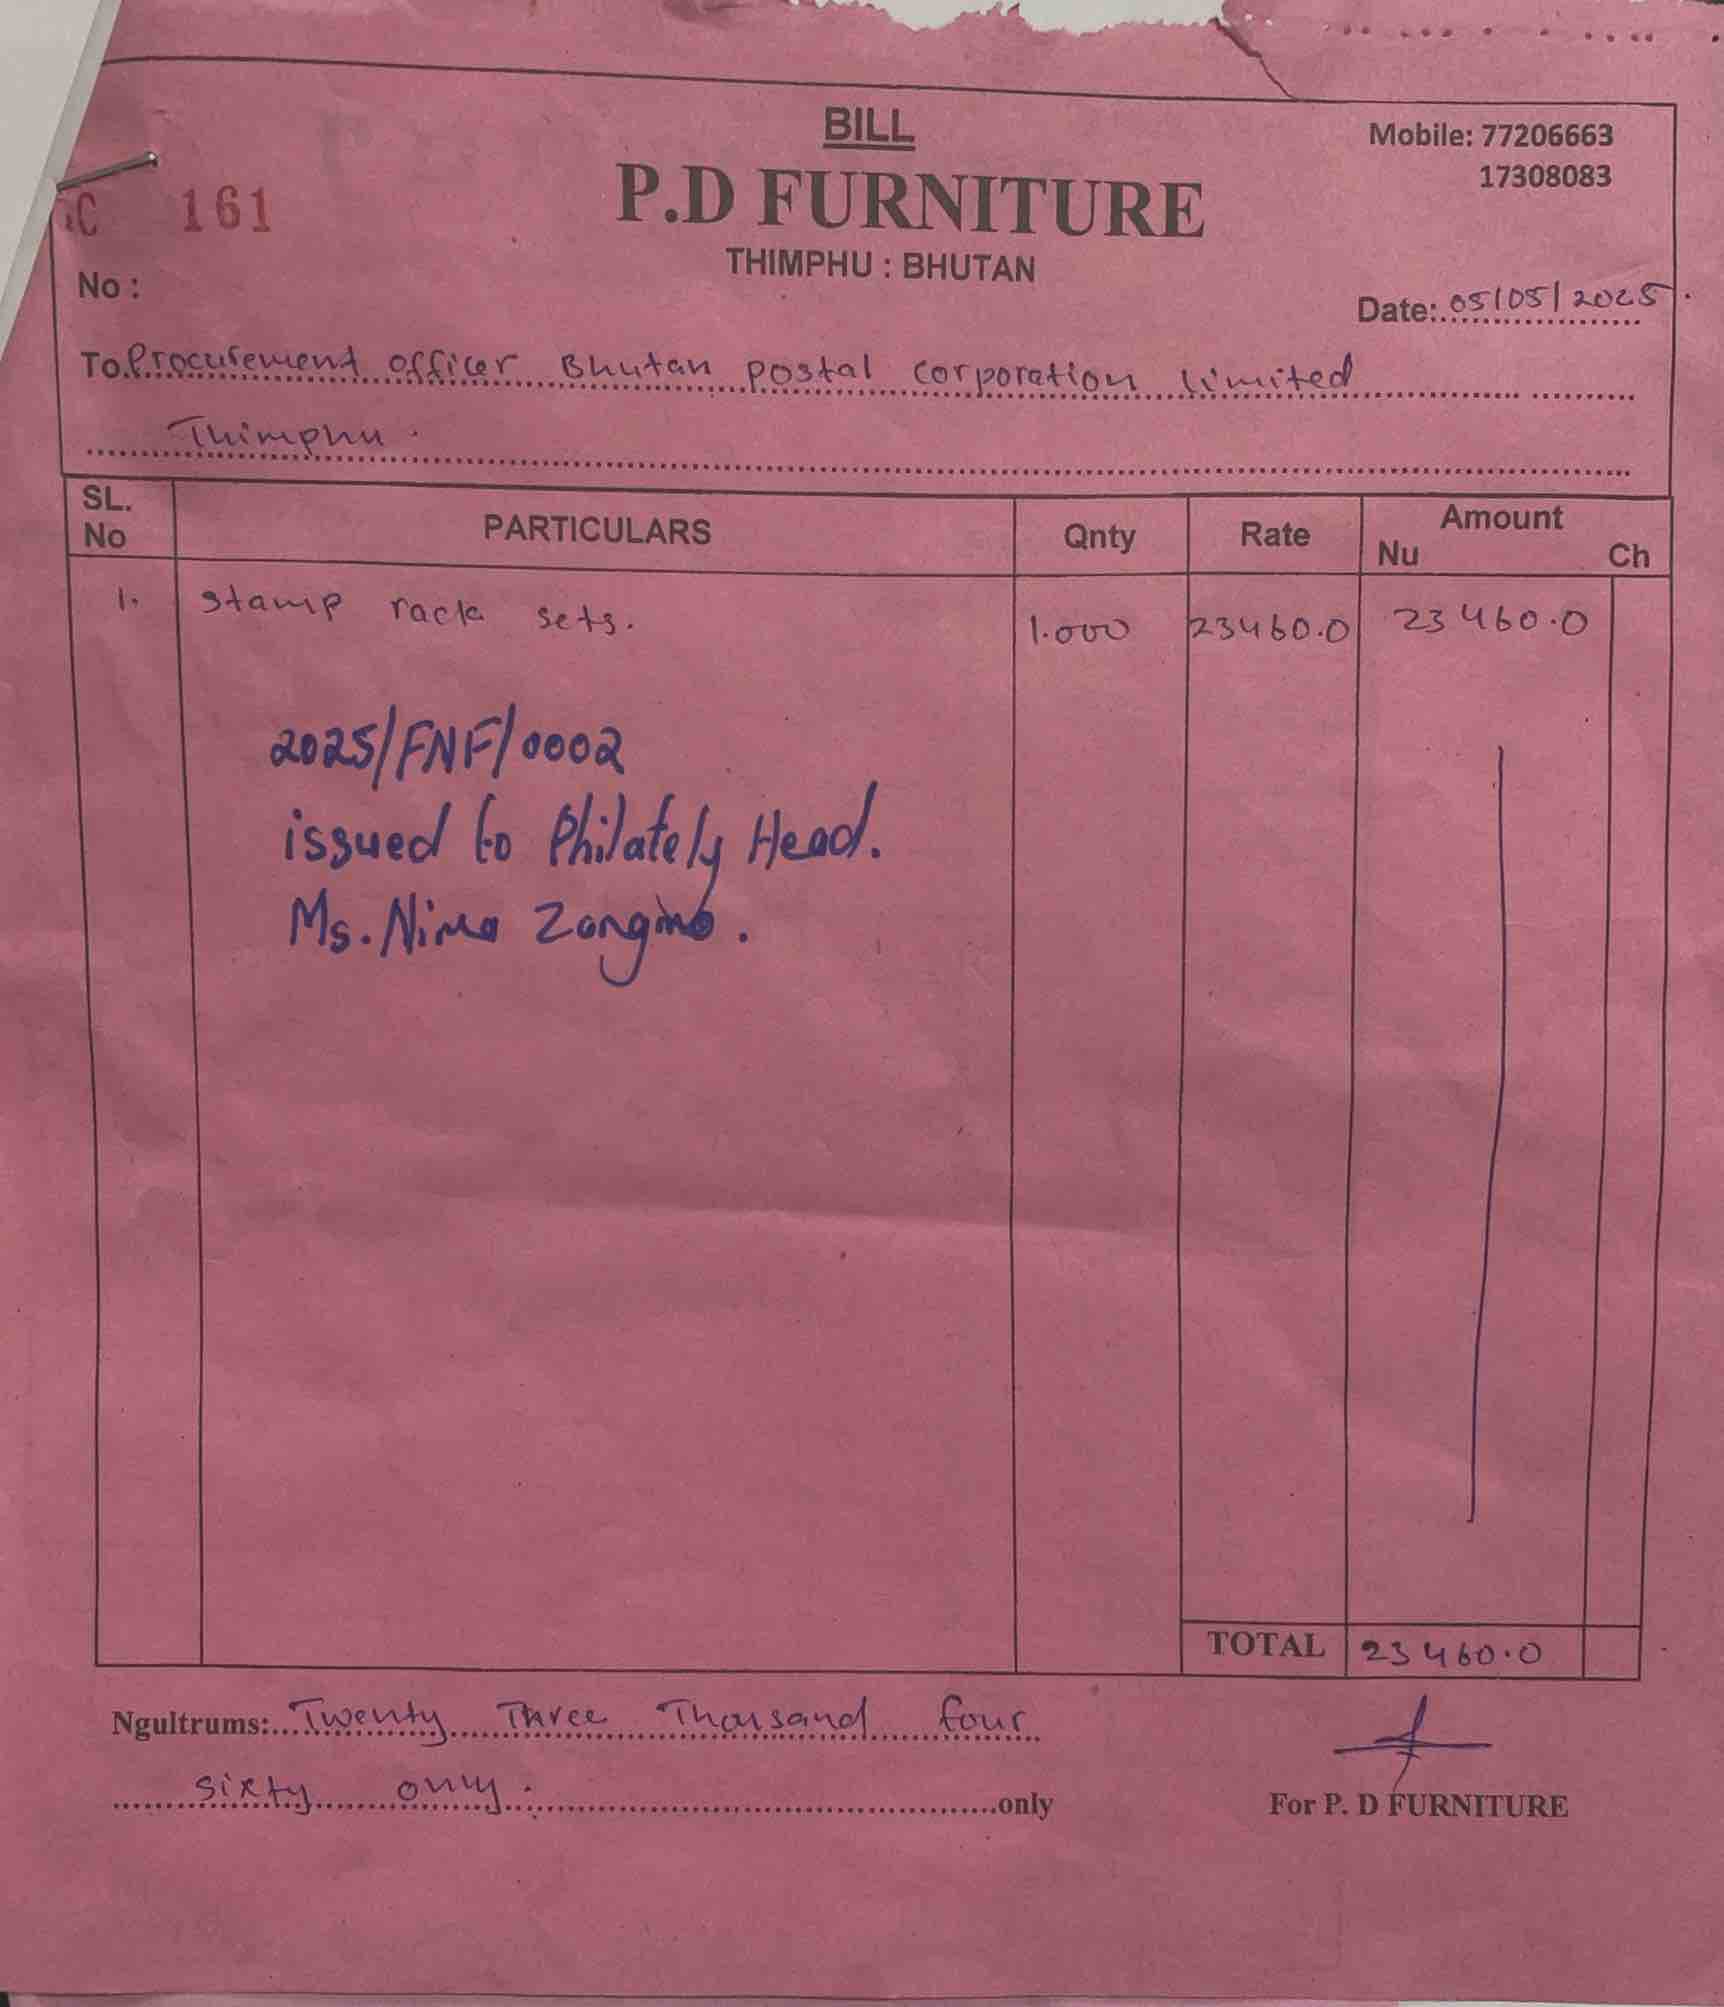 BILL
Mobile: 77206663
17308083
P.D FURNITURE
C 161
THIMPHU : BHUTAN
No :
Date: 05/05/2025.
To Procurement officer Bhutan postal corporation limited
Thimphu.
SL. No PARTICULARS Qnty Rate Amount Nu Ch
1. stamp rack sets. 1.000 23460.0 23460.0
2025/FNF/0002
issued to Philately Head.
Ms. Nima Zangmo.
TOTAL 23460.0
Ngultrums: Twenty Three Thousand four
sixty only. only
For P. D FURNITURE